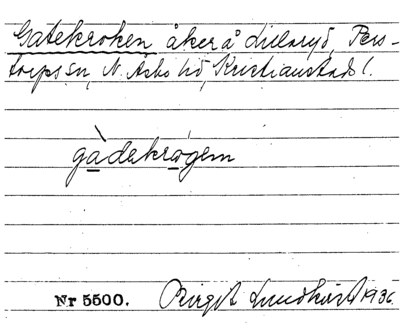 Gatekroken åker å Lillaryd, Pers-
torps sn, N. Åsbo hd, Kristianstads l.
gàdekrogem
Nr 5500. Birgit Lundkvist 1936